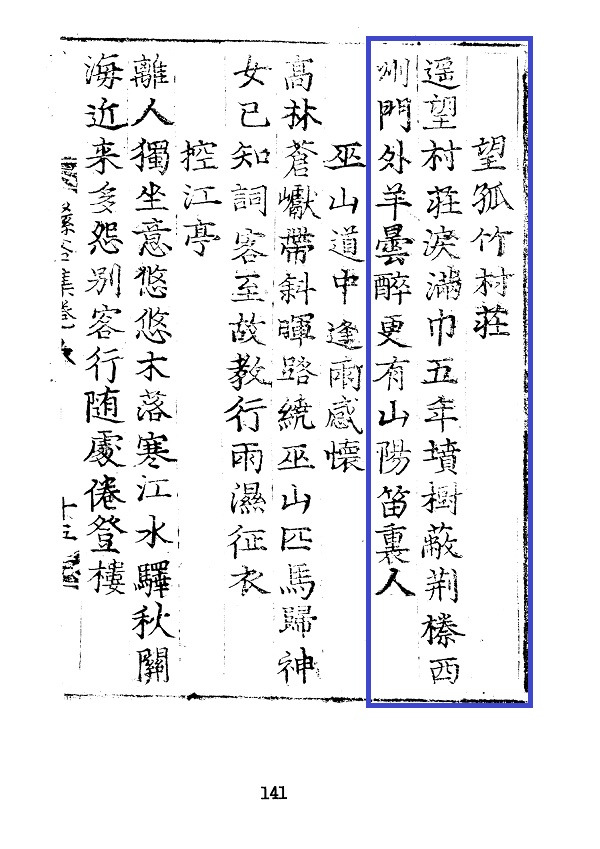 望孤竹村莊
遥望村莊淚滿巾五年墳樹蔽荆榛西
州門外羊曇醉更有山陽笛裏人
巫山道中逢雨感懷
高林蒼巘帶斜暉路繞巫山匹馬歸神
女已知詞客至故教行雨濕征衣
控江亭
離人獨坐意悠悠木落寒江水驛秋關
海近来多怨别客行随處倦登樓
集卷
十三
141